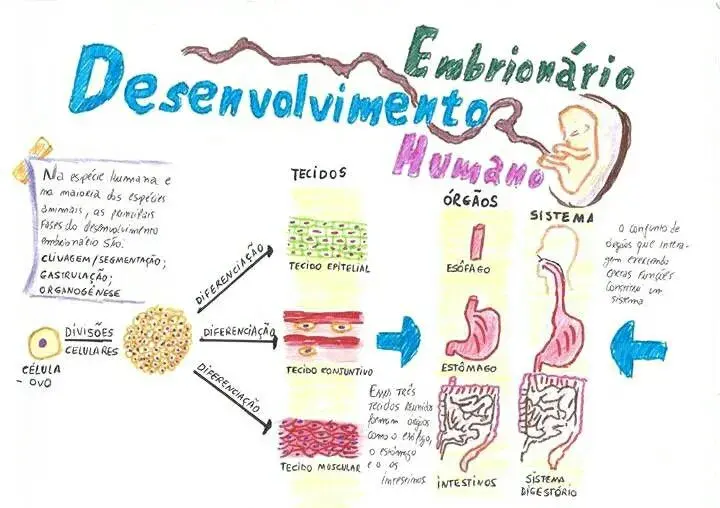 Desenvolvimento
Embrionário
Humano
Na espécie humana e
na maioria das espécies
animais, as principais
fases do desenvolvimento
embrionário são:
CLIVAGEM/SEGMENTAÇÃO;
GASTRULAÇÃO;
ORGANOGÉNESE
CÉLULA
- OVO
DIVISÕES
CELULARES
DIFERENCIAÇÃO
DIFERENCIAÇÃO
DIFERENCIAÇÃO
TECIDOS
TECIDO EPITELIAL
TECIDO CONJUNTIVO
TECIDO MUSCULAR
Esses três
tecidos reunidos
formam orgãos
como o esófago,
o estômago
e o os
intestinos
ÓRGÃOS
ESÔFAGO
ESTÔMAGO
INTESTINOS
SISTEMA
SISTEMA
DIGESTÓRIO
o conjunto de
órgãos que intera-
gem exercendo
certas funções
constitui um
sistema